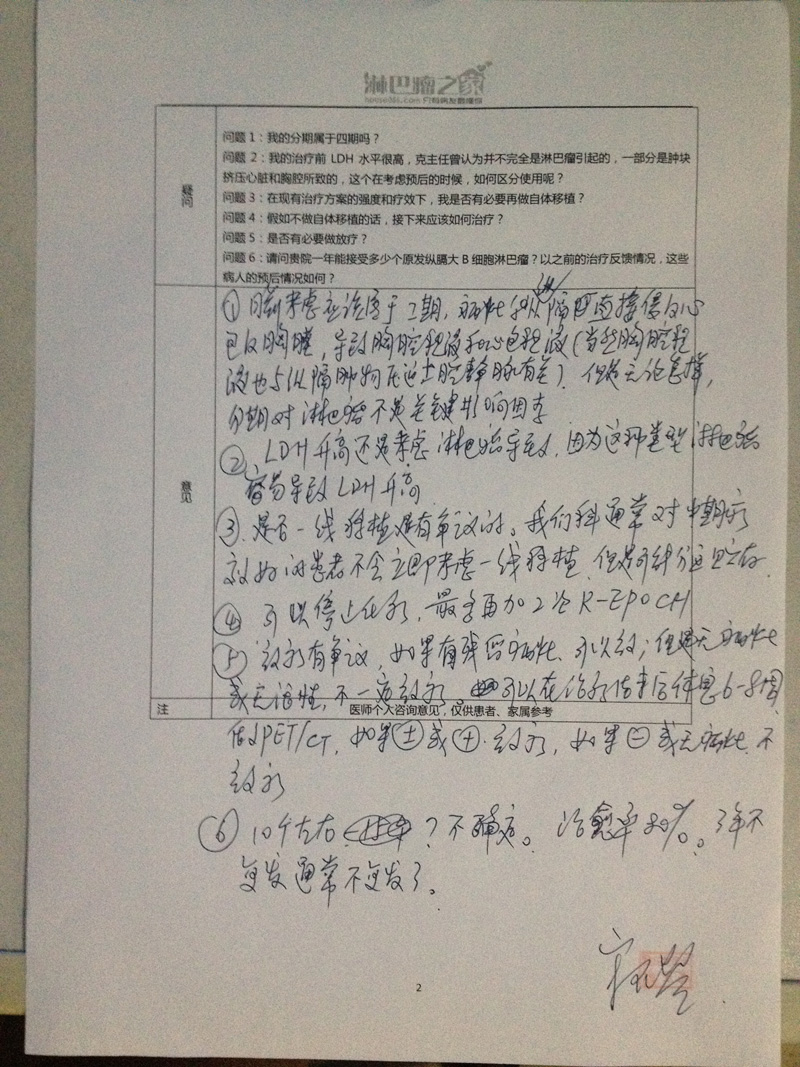 淋巴瘤之家
疑问
问题 1：我的分期属于四期吗？
问题 2：我的治疗前 LDH 水平很高，克主任曾认为并不完全是淋巴瘤引起的，一部分是肿块
挤压心脏和胸腔所致的，这个在考虑预后的时候，如何区分使用呢？
问题 3：在现有治疗方案的强度和疗效下，我是否有必要再做自体移植？
问题 4：假如不做自体移植的话，接下来应该如何治疗？
问题 5：是否有必要做放疗？
问题 6：请问贵院一年能接受多少个原发纵膈大 B 细胞淋巴瘤？以之前的治疗反馈情况，这些
病人的预后情况如何？
意见
① 考虑应该属于二期，病灶从纵隔直接侵及心
包及胸膜，导致胸腔积液和心包积液（当然胸腔积
液也与纵隔肿物压迫上腔静脉有关）。但是无论怎样，
分期对淋巴瘤不是关键影响因素
② LDH升高还是考虑淋巴瘤导致，因为这种类型淋巴瘤
容易导致LDH升高
③ 是否一线移植是有争议的。我们科通常对中期疗
效好的患者不会立即考虑一线移植，但是干细胞
④ 可以停止化疗，最多再加2次R-EPOCH
⑤ 放疗有争议，如果有残留病灶、可以放；但是无病灶
或无活性，不一定放疗。可以在治疗结束后休息6-8周
注
医师个人咨询意见，仅供患者、家属参考
做PET/CT，如果±或+放疗，如果⊖或无病灶，不
放疗
⑥ 10个左右？不确定。治愈率80%。3年不
复发通常不复发了。
2